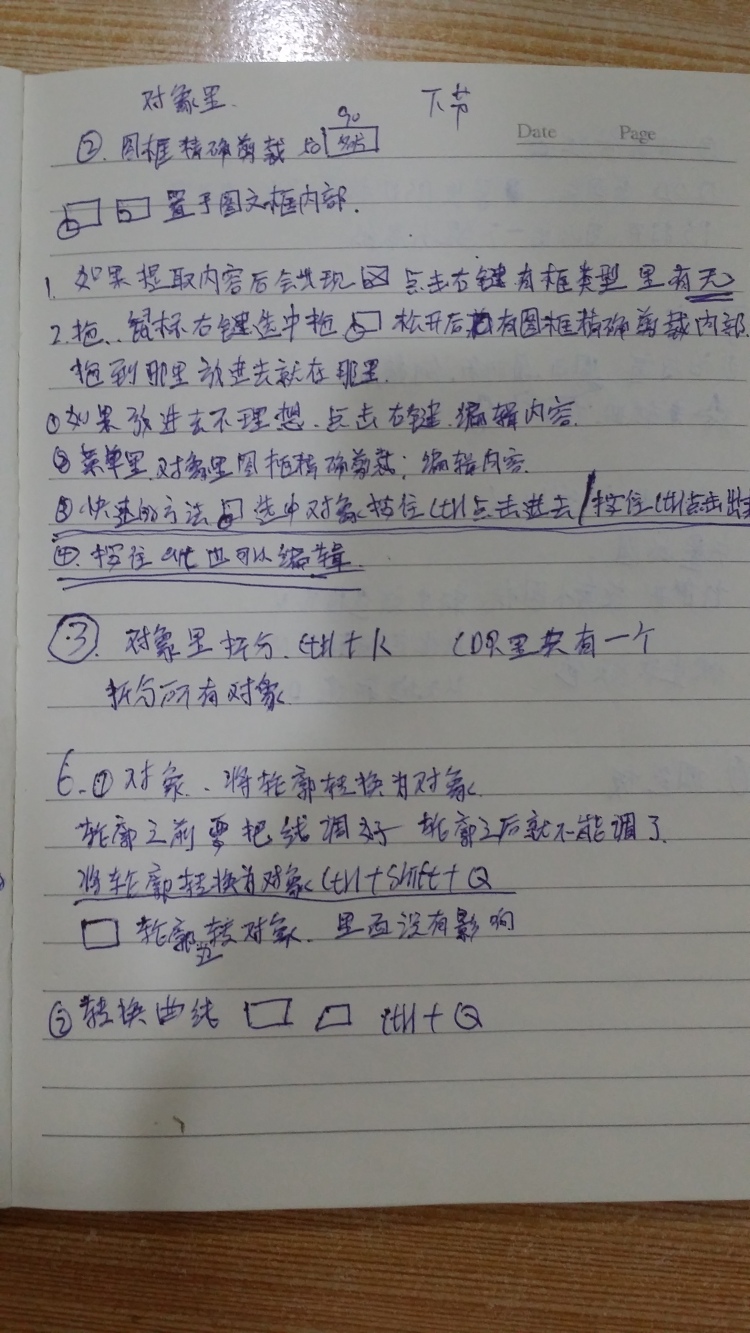 对象里. 下节
Date Page
90
②. 图框精确剪裁
置于图文框内部.
1. 如果提取内容后会出现 点击右键 有框类型里有无
2. 拖.. 鼠标右键选中拖 松开后 有图框精确剪裁内部.
拖到那里放进去就在那里.
①如果放进去不理想. 点击右键. 编辑内容.
②菜单里.对象里图框精确剪裁; 编辑内容.
③快速的方法 选中对象按住Ctrl点击进去/按住Ctrl点击出去
④. 按住 也可以编辑.
③. 对象里拆分. Ctrl+K CDR里共有一个
拆分所有对象
6.①对象.、将轮廓转换为对象
轮廓之前要把线调好 轮廓之后就不能调了.
将轮廓转换为对象Ctrl+Shift+Q
轮廓转对象. 里面没有影响
②转换曲线 Ctrl+Q